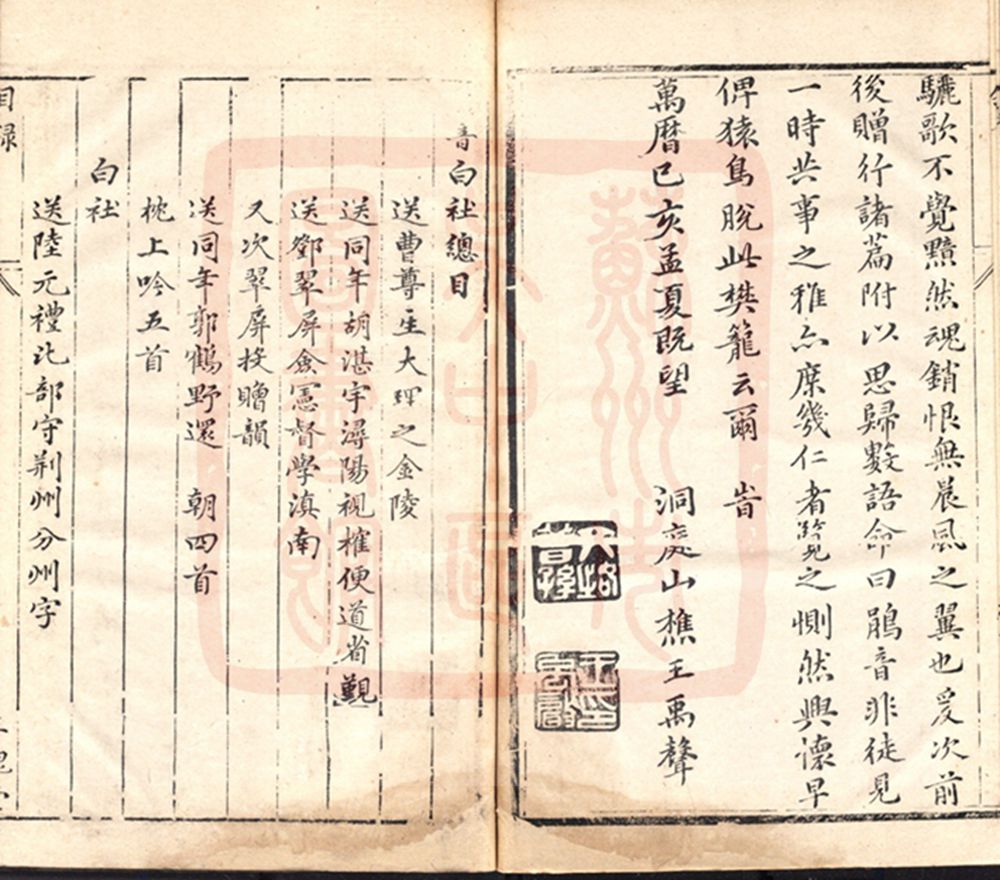 驪歌不覺黯然魂銷恨無晨風之翼也爰次前
後贈行諸篇附以思歸數語命曰鵑音非徒見
一時共事之雅亦庶幾仁者覽之惻然興懷早
俾猿鳥脫此樊籠云爾 旹
萬曆己亥孟夏既望 洞庭山樵王禹聲
音白社總目
送曹尊生大理之金陵
送同年胡湛宇潯陽視榷便道省覲
送鄧翠屏僉憲督學滇南
又次翠屏投贈韻
送同年郭鶴野還 朝四首
枕上吟五首
白社
送陸元禮比部守荆州分州字
目錄